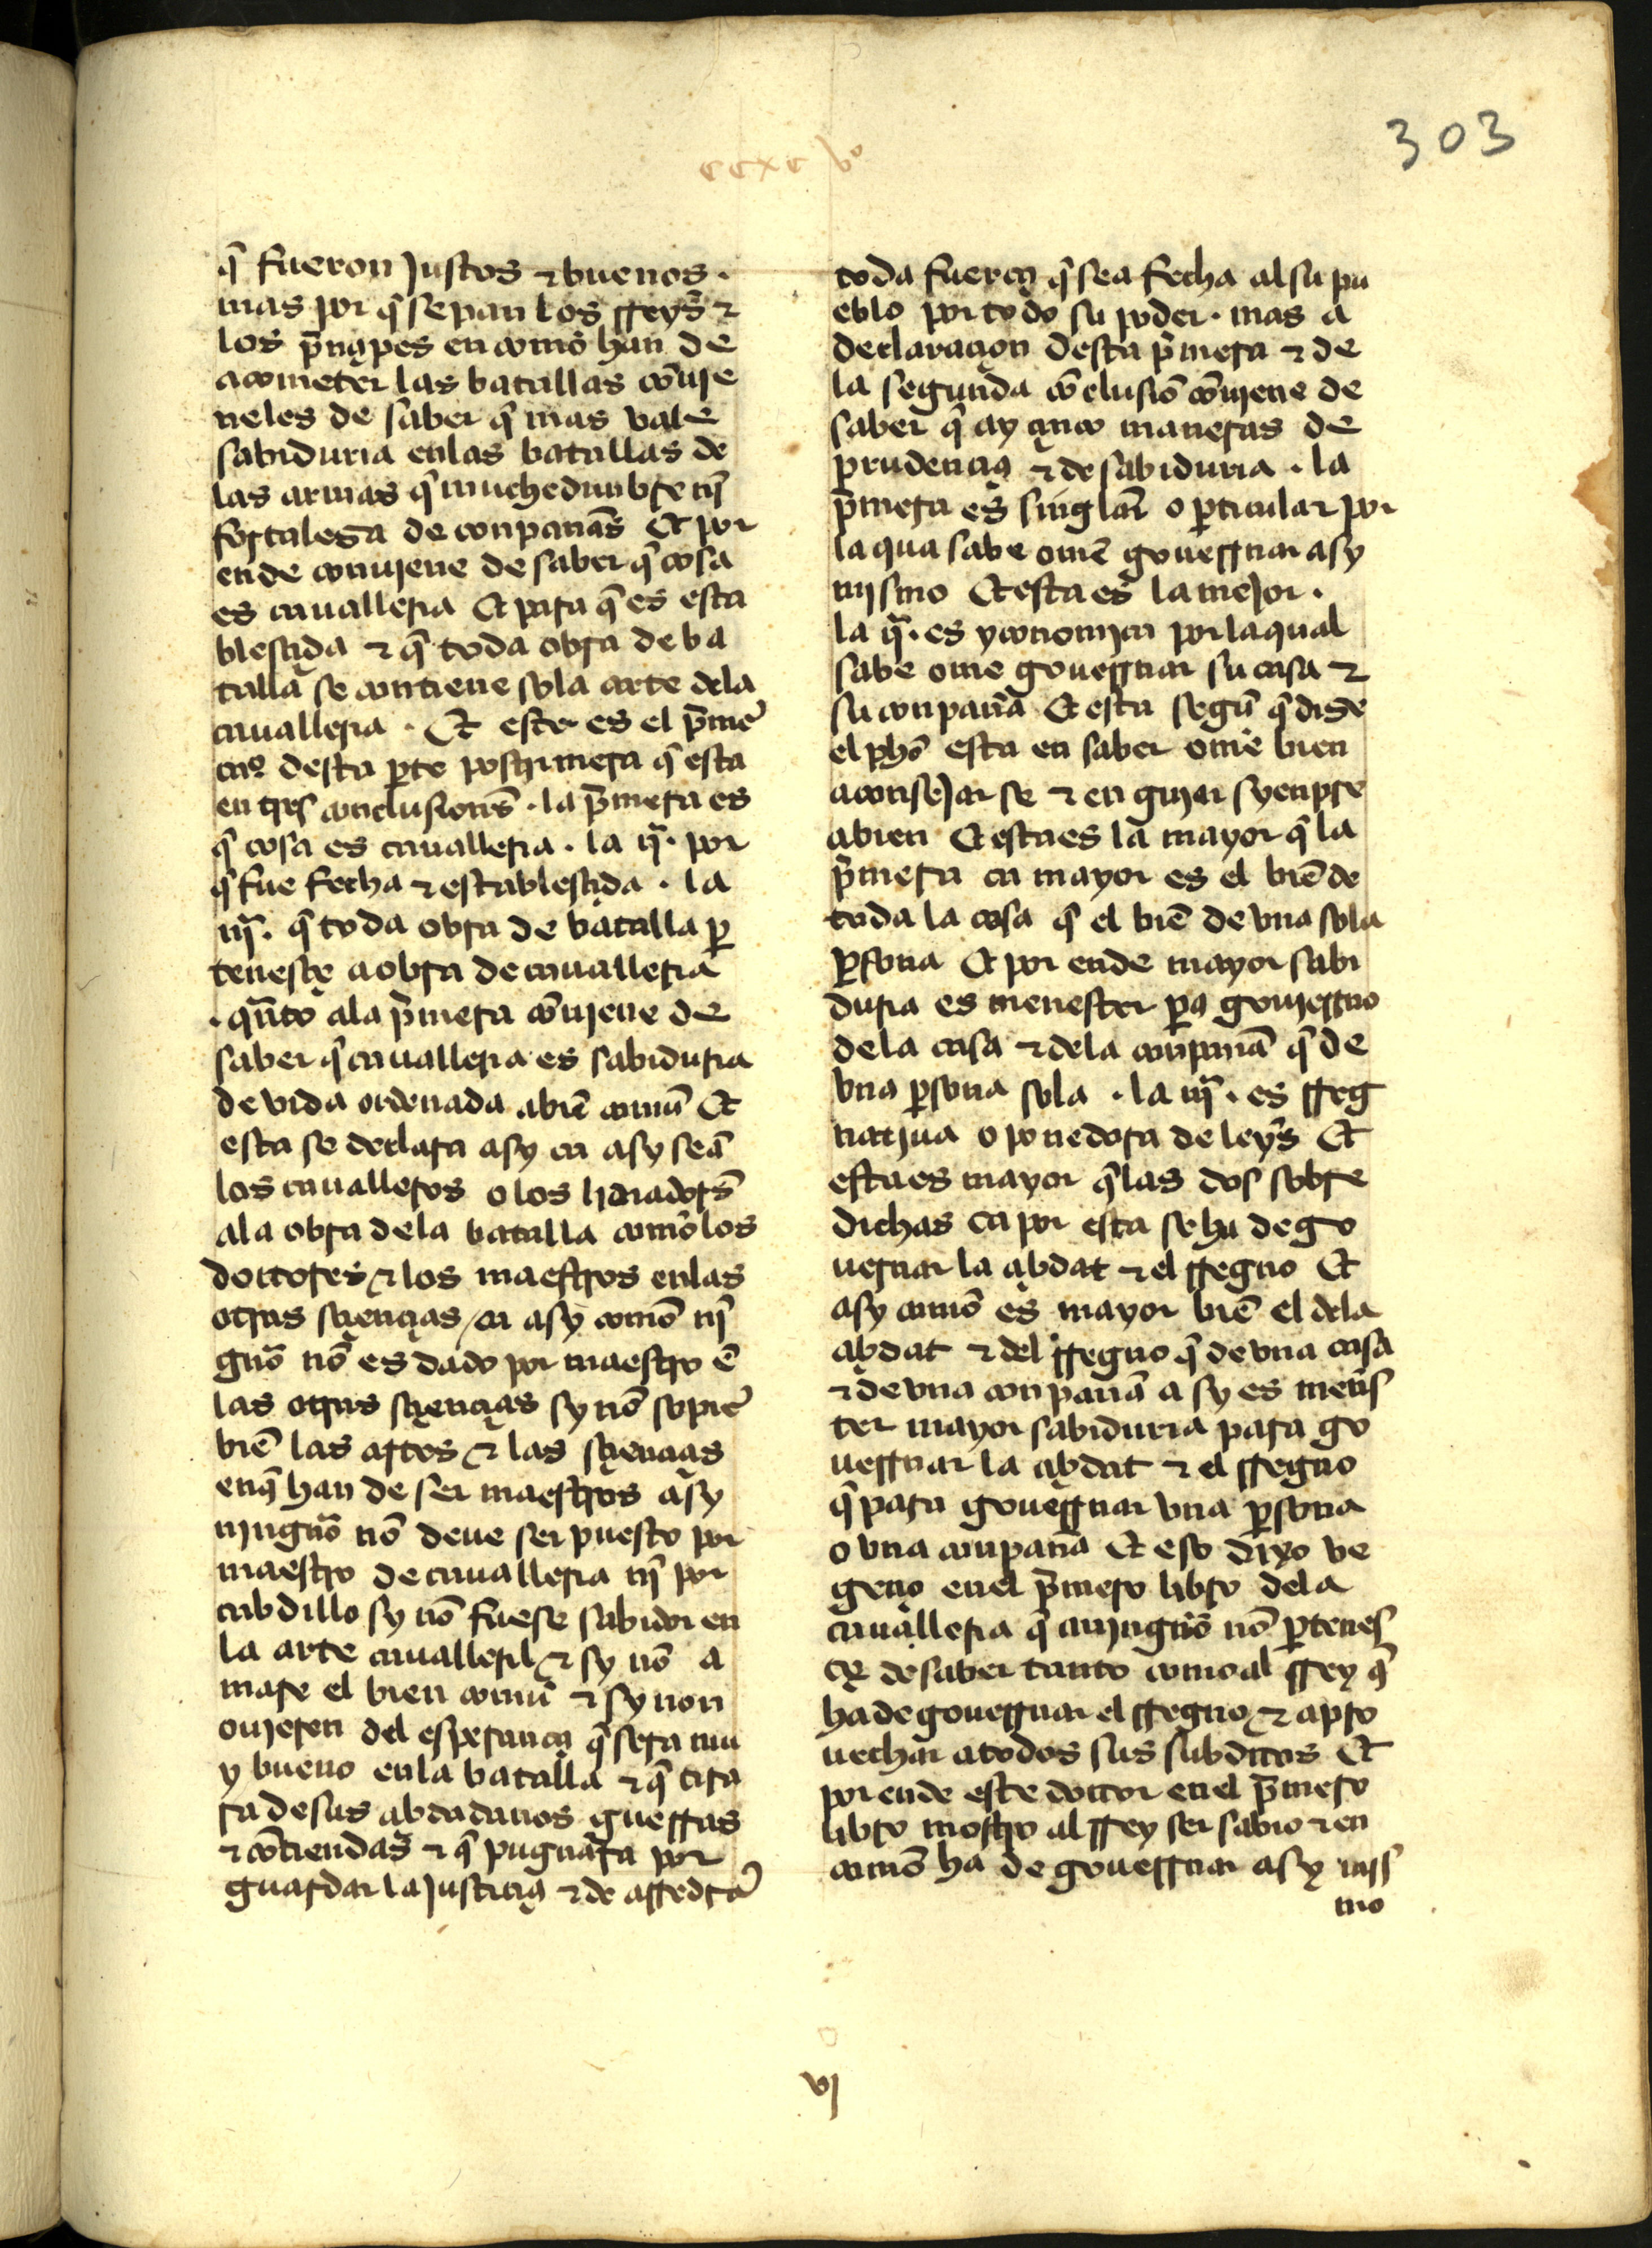 303
ccxc vº
q̃ fueron Justos ⁊ buenos .
mas por q̃ sepan los rreyš ⁊
los p̃nçipes en comõ han de
acometer las batallas cõuje
neles de saber q̃ mas vale
sabiduria enlas batallas de
las armas q̃ muchedunbre nj̃
fortaleza de conpañas Et por
ende conujene de saber q̃ cosa
es caualleria Et para q̃ es esta
blesçida ⁊ q̃ toda obra de ba
talla se contiene so la arte dela
caualleria . Et este es el p̃mer̃
caº desta p̱te postrimera q̃ esta
en tres conclusionẽs . la p̃mera es
q̃ cosa es caualleria . la ijª . por
q̃ fue fecha ⁊ establesçida . la
iijª . q̃ toda obra de batalla p̱
tenesçe a obra de caualleria
. qñto ala p̃mera cõujene de
saber q̃ caualleria es sabiduria
de vida ordenada a biẽ comũ Et
esta se declara asy ca asy seã
los caualleros o los lidiadorẽs
ala obra dela batalla comõ los
doctores ⁊ los maestros enlas
otras sçiençias / ca asy comõ nj̃
gũo nõ es dado por maestro ẽ
las otras sçiençias sy nõ sopier̃
biẽ las artes ⁊ las sçiençias
enq̃ han de ser maestros asy
njngũo nõ deue ser puesto por
maestro de caualleria nj̃ por
cabdillo sy nõ fuese sabidor en
la arte caualleril ⁊ sy nõ a
mare el bien comũ ⁊ sy non
oujeren del esperança q̃ sera mu
y bueno enla batalla ⁊ q̃ tira
ra de sus çibdadanos guerras
⁊ cõtiendas ⁊ q̃ pugnara por
guardar la Justiçia ⁊ de arredrar̃
toda fuerça q̃ sea fecha al su pu
eblo por todo su poder . mas a
declaraçion desta p̃mera ⁊ de
la segunda cõclusiõ cõujene de
saber q̃ ay çinco maneras de
prudençia ⁊ de sabiduria . la
p̃mera es singlar̃ o p̱ticular por
la qua sabe omẽ gouernar asy
mjsmo Et esta es la mejor .
la ijª . es yconomjca por la qual
sabe ome gouernar su casa ⁊
su conpañã Et esta segũ q̃ dize
el phõ esta en saber omẽ bien
aconseJar se ⁊ en guiar syenpre
a bien Et esta es la mayor q̃ la
p̃mera ca mayor es el biẽ de
toda la casa q̃ el biẽ de vna sola
p̱sona Et por ende mayor sabi
duria es menester p̱a goujerno
dela casa ⁊ dela conpañã q̃ de
vna p̱sona sola . la iijª . es rreg
natiua o ponedora de leyš Et
esta es mayor q̃ las dos sobre
dichas ca por esta se ha de go
uernar la çibdat ⁊ el rregno Et
asy comõ es mayor biẽ el dela
çibdat ⁊ del rregno q̃ de vna casa
⁊ de vna conpañã asy es meñs
ter mayor sabiduria para go
uernar la çibdat ⁊ el rregno
q̃ para gouernar vna p̱sona
o vna conpañã Et eso dixo ve
geçio enel p̃mero libro dela
caualleria q̃ anjngũo nõ p̱tenes
çe de saber tanto como al rrey q̃
ha de gouernar el rregno ⁊ apro
uechar a todos sus subditos Et
por ende este doctor enel p̃mero
libro mostro al rrey ser sabio ⁊ en
comõ ha de gouernar asy mjs
mo
vj